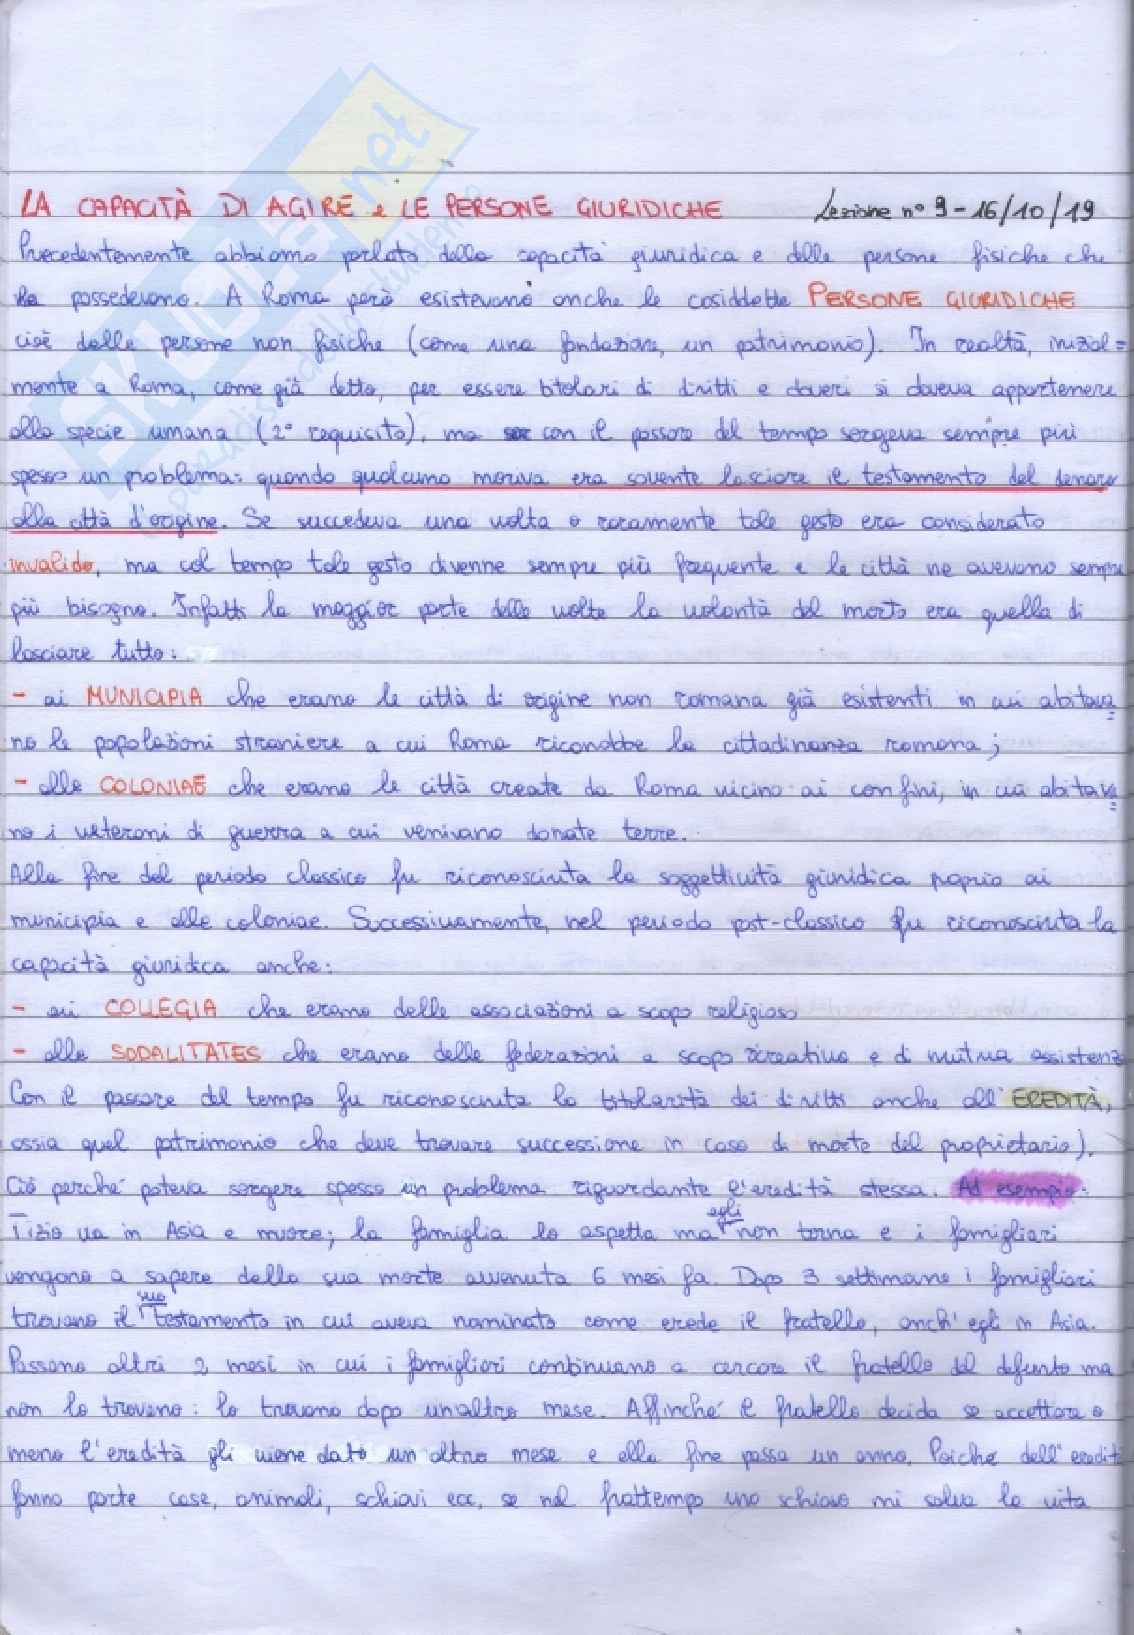 LA CAPACITÀ DI AGIRE e LE PERSONE GIURIDICHE Lezione n° 9 - 16/10/19
Precedentemente abbiamo parlato della capacità giuridica e delle persone fisiche che
la possedevano. A Roma però esistevano anche le cosiddette PERSONE GIURIDICHE
cioè delle persone non fisiche (come una fondazione, un patrimonio). In realtà, inizial=
mente a Roma, come già detto, per essere titolari di diritti e doveri si doveva appartenere
alla specie umana (2° requisito), ma con il passare del tempo sorgeva sempre più
spesso un problema: quando qualcuno moriva era sovente lasciare il testamento del denaro
alla città d'origine. Se succedeva una volta o raramente tale gesto era considerato
invalido, ma col tempo tale gesto divenne sempre più frequente e le città ne avevano sempre
più bisogno. Infatti la maggior parte delle volte la volontà del morto era quella di
lasciare tutto:
- ai MUNICIPIA che erano le città di origine non romana già esistenti in cui abitava=
no le popolazioni straniere a cui Roma riconobbe la cittadinanza romana;
- alle COLONIAE che erano le città create da Roma vicino ai confini, in cui abitava=
no i veterani di guerra a cui venivano donate terre.
Alla fine del periodo classico fu riconosciuta la soggettività giuridica proprio ai
municipia e alle coloniae. Successivamente, nel periodo post-classico fu riconosciuta la
capacità giuridica anche:
- ai COLLEGIA che erano delle associazioni a scopo religioso
- alle SODALITATES che erano delle federazioni a scopo ricreativo e di mutua assistenz
Con il passare del tempo fu riconosciuta la titolarità dei diritti anche all'EREDITÀ,
ossia quel patrimonio che deve trovare successione in caso di morte del proprietario).
Ciò perché poteva sorgere spesso un problema riguardante l'eredità stessa. Ad esempio:
Tizio va in Asia e muore; la famiglia lo aspetta ma egli non torna e i famigliari
vengono a sapere della sua morte avvenuta 6 mesi fa. Dopo 3 settimane i famigliari
trovano il suo testamento in cui aveva nominato come erede il fratello, anch'egli in Asia.
Passano altri 2 mesi in cui i famigliari continuano a cercare il fratello del defunto ma
non lo trovano: lo trovano dopo un'altro mese. Affinché il fratello decida se accettare o
meno l'eredità gli viene dato un altro mese e alla fine passa un anno. Poiché dell'eredità
fanno parte case, animali, schiavi ecc, se nel frattempo uno schiavo mi salva la vita
SKUOLA.net